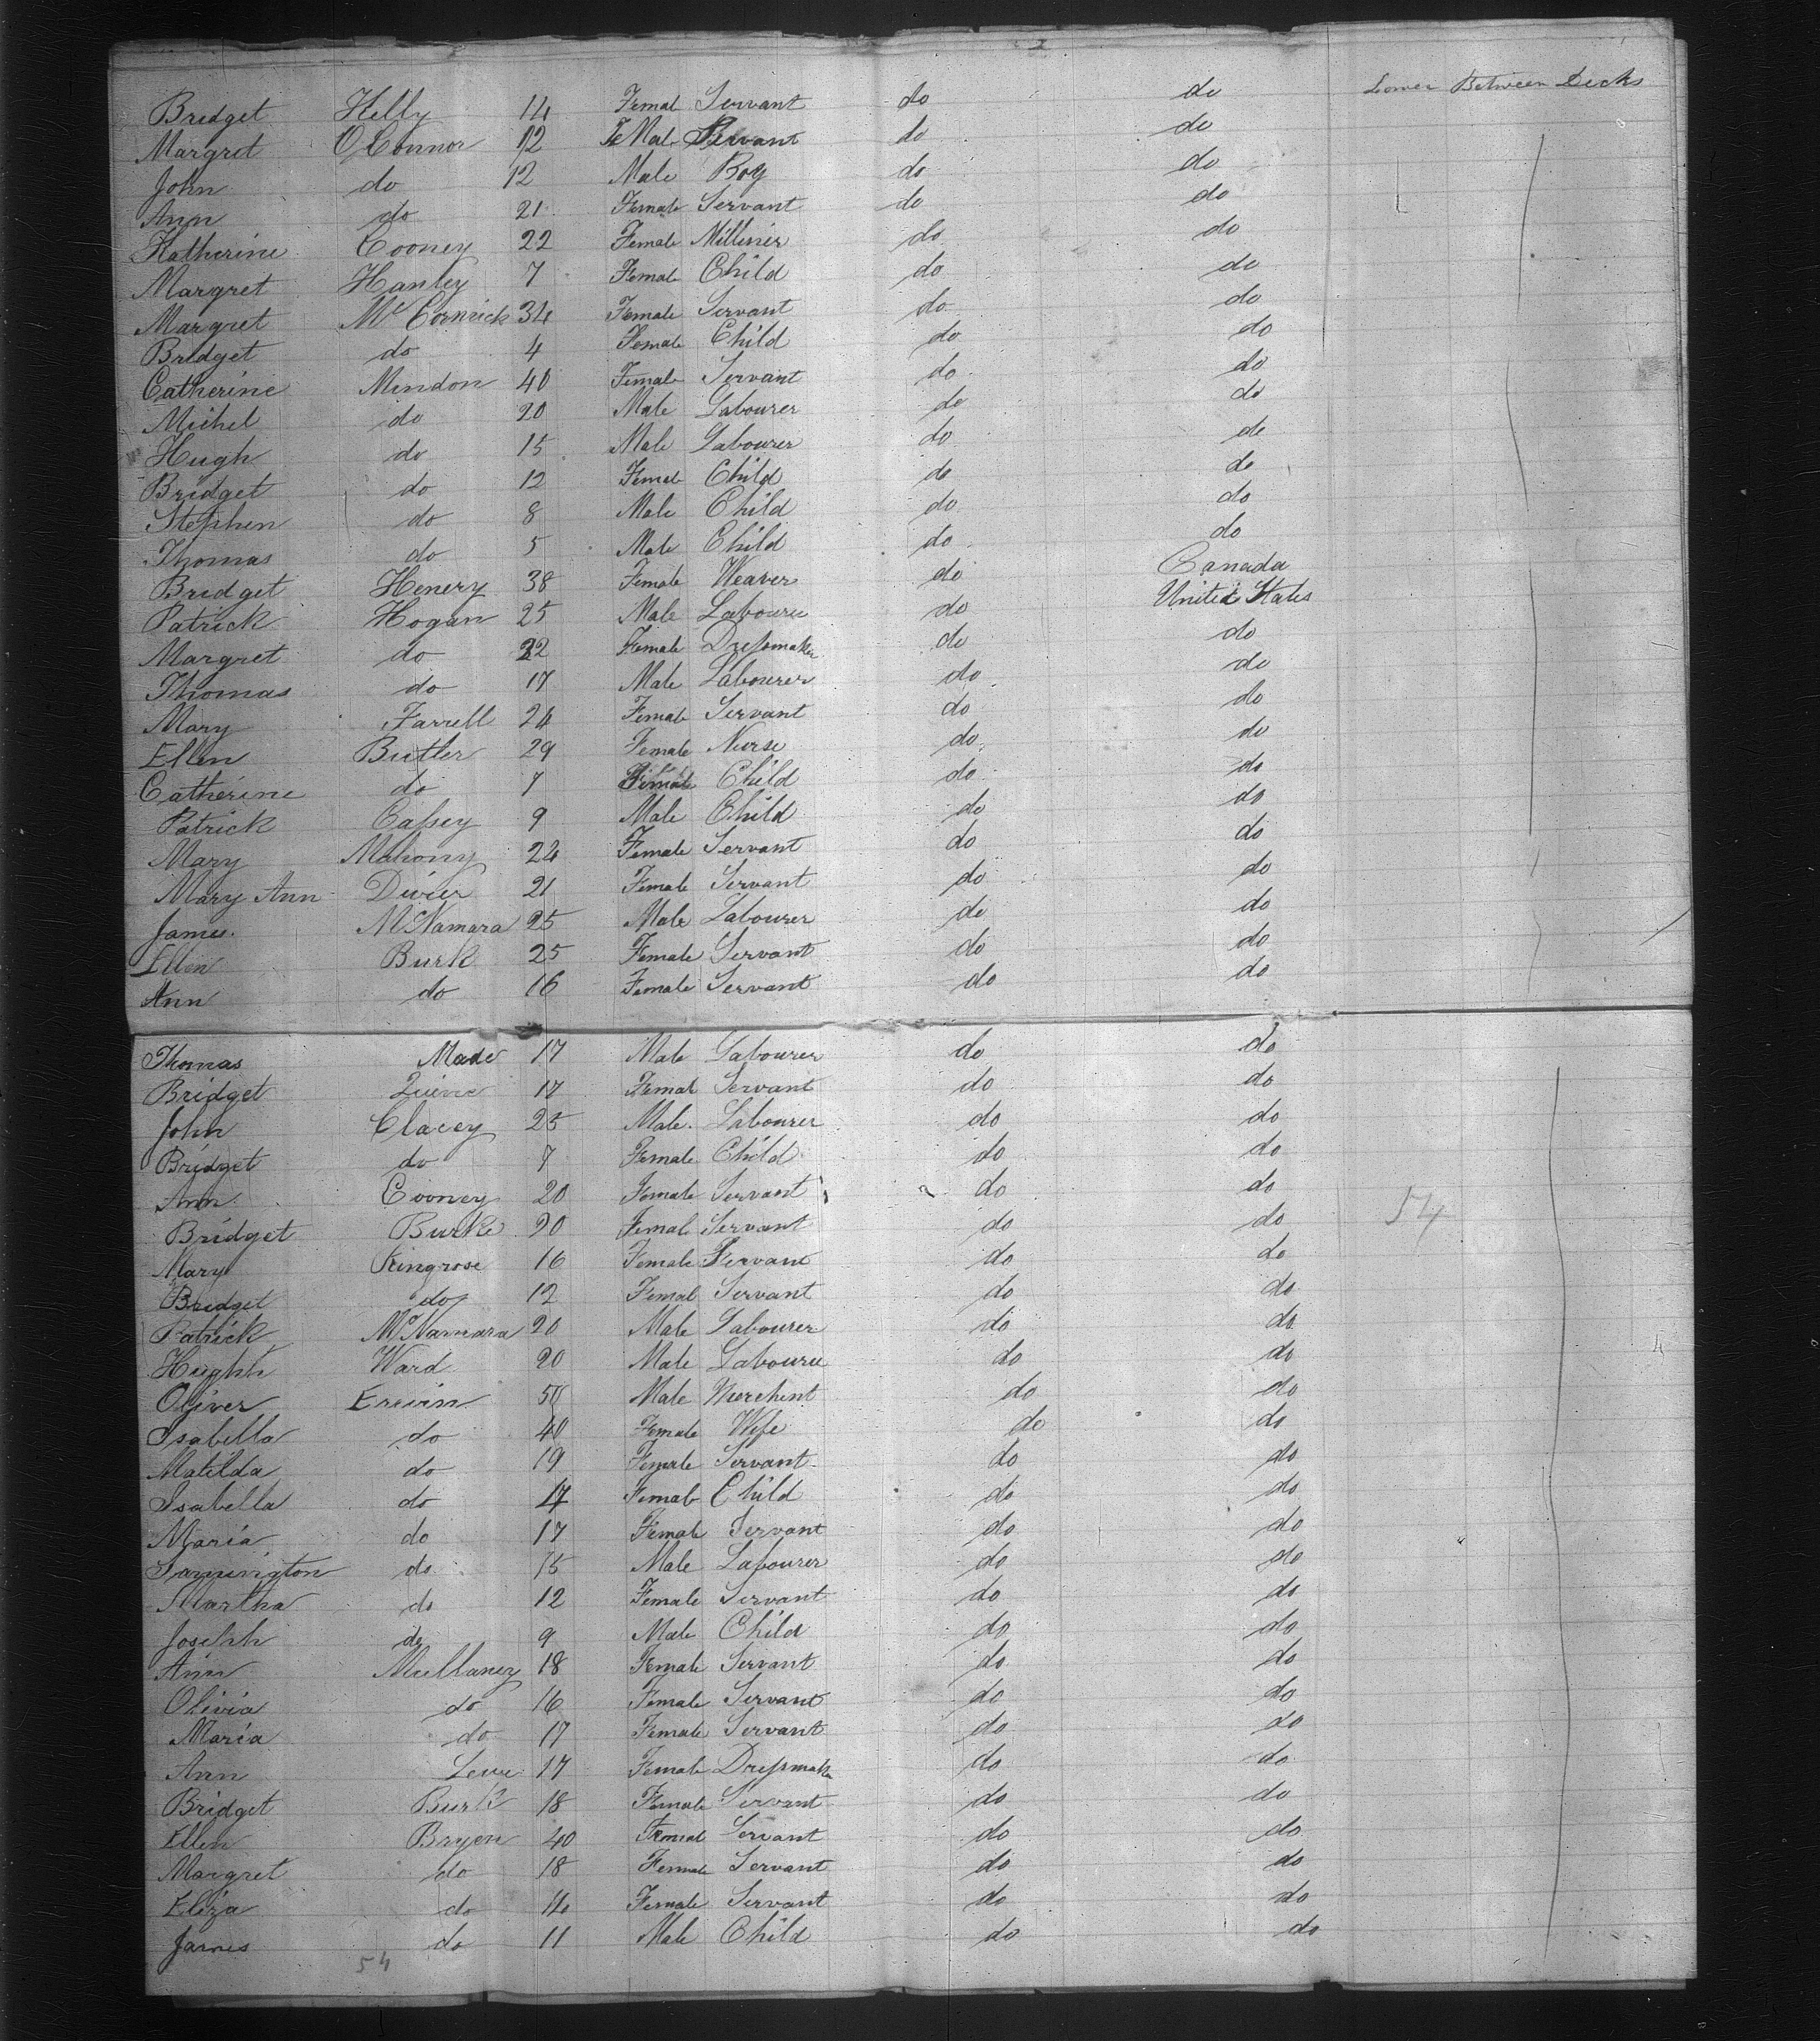 Lower Between Decks
Bridget Kelly 14 Femal Servant do do
Margret O Connor 12 FeMal Servant do do
John do 12 Male Boy do do
Ann do 21 Female Servant do do
Katherine Cooney 22 Female Milliner do do
Margret Hanley 7 Female Child do do
Margret McCormick 34 Female Servant do do
Bridget do 4 Female Child do do
Catherine Mindon 40 Female Servant do do
Michel do 20 Male Labourer do do
Hugh do 15 Male Labourer do do
Bridget do 12 Femal Child do do
Stephen do 8 Male Child do do
Thomas do 5 Male Child do do
Bridget Henery 38 Female Weaver do Canada
Patrick Hogan 25 Male Labourer do United States
Margret do 22 Female Dressmaker do do
Thomas do 17 Male Labourer do do
Mary Farrell 24 Female Servant do do
Ellen Butler 29 Female Nurse do do
Catherine do 7 Female Child do do
Patrick Cassey 9 Male Child do do
Mary Mahony 24 Female Servant do do
Mary Ann Divier 21 Female Servant do do
James McNamara 25 Male Labourer do do
Ellen Burk 25 Female Servant do do
Ann do 16 Female Servant do do
Thomas Made 17 Male Labourer do do
Bridget 17 Femal Servant do do
John Clacey 25 Male Labourer do do
Bridget do 7 Female Child do do
Ann Cooney 20 Female Servant do do
Bridget Burke 20 Femal Servant do do 54
Mary Ringrose 16 Female Servant do do
Bridget do 12 Femal Servant do do
Patrick McNamara 20 Male Labourer do do
Hughh Ward 20 Male Labourer do do
Oliver Erevin 50 Male Merchent do do
Isabella do 40 Female Wife do do
Matilda do 19 Female Servant do do
Isabella do Female Child do do
Maria do 17 Female Servant do do
do 15 Male Labourer do do
Martha do 12 Female Servant do do
Joseph do 9 Male Child do do
Ann Mullaney 18 Female Servant do do
Olivia do 16 Female Servant do do
Maria do 17 Female Servant do do
Ann 17 Female Dressmaker do do
Bridget Burk 18 Female Servant do do
Ellen Bryen 40 Femal Servant do do
Margret do 18 Female Servant do do
Eliza do 14 Female Servant do do
James do 11 Male Child do do
54